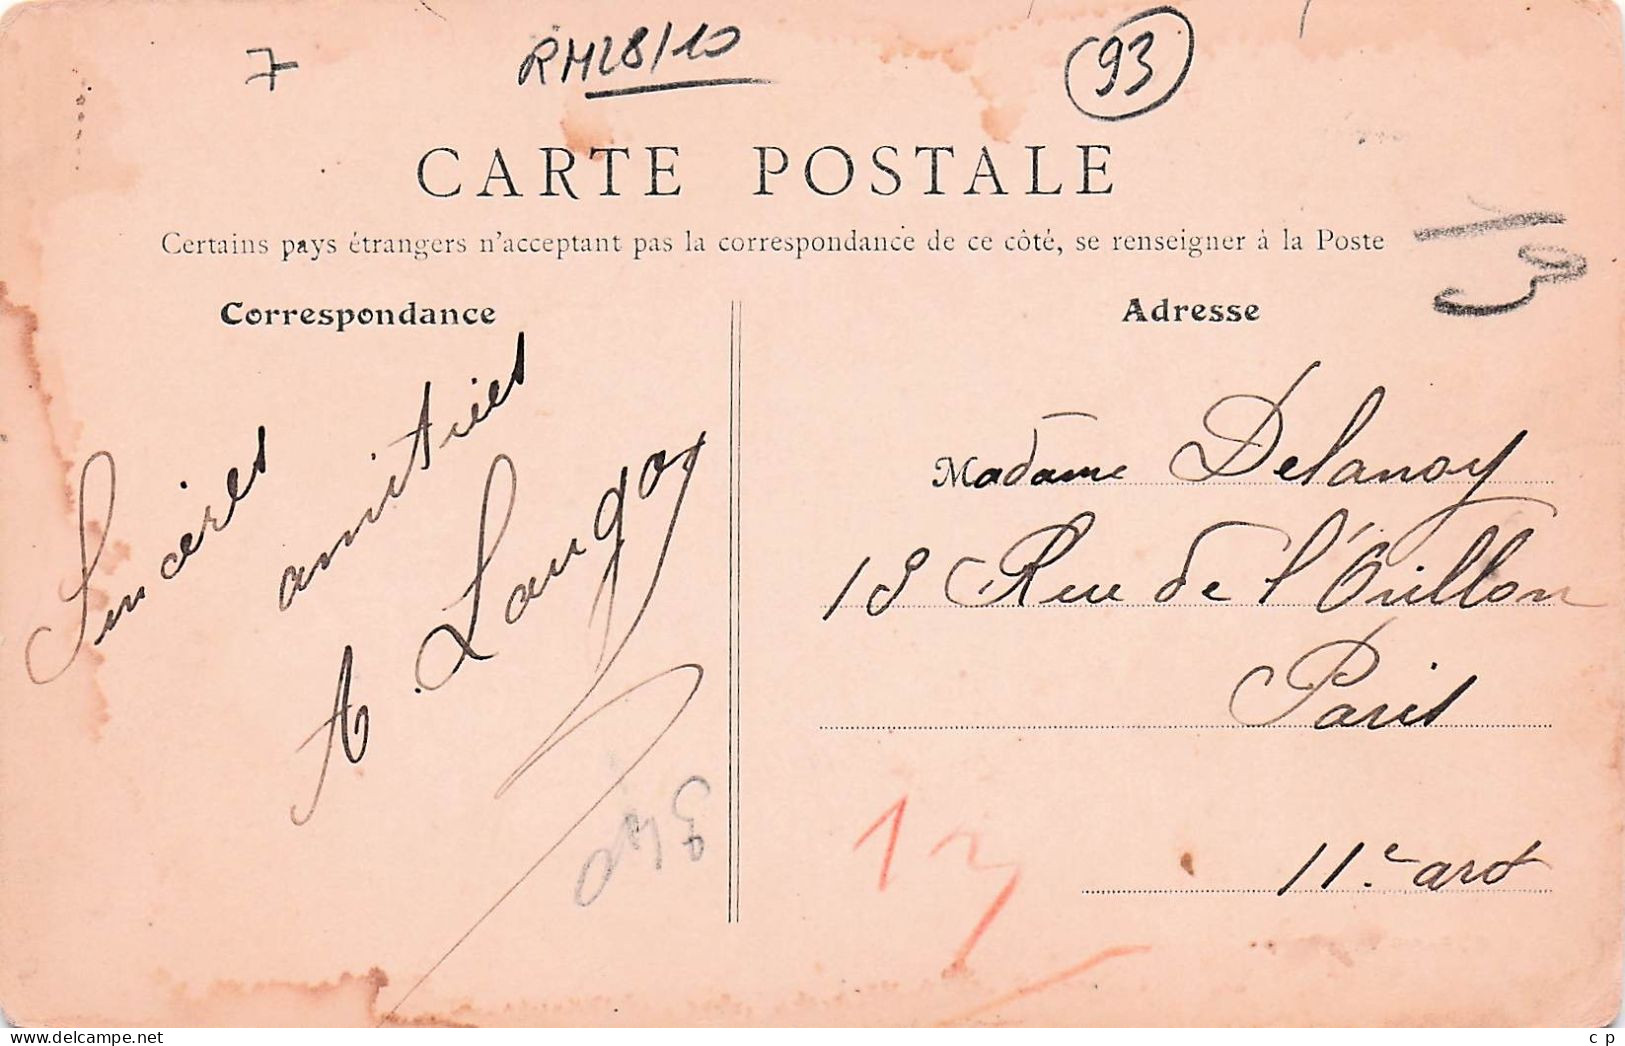 7
RM28/10
93
CARTE POSTALE
Certains pays étrangers n'acceptant pas la correspondance de ce côté, se renseigner à la Poste
Correspondance
Sincères
amitiés
A Langoy
Adresse
Madame Delanoy
18 Rue de l'Orillon
Paris
11e. ardt
13
delcampe.net
c p